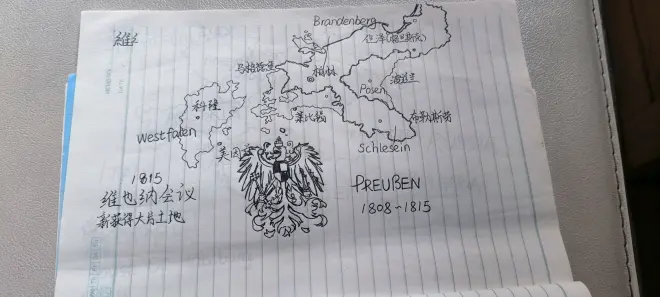 Brandenberg
但泽(格但斯克)
马格德堡
柏林
海兹兰
Posen
科隆
莱比锡
布勒斯劳
Westfalen
美因
Schlesein
1815
维也纳会议
新获得大片土地
PREUßEN
1808~1815